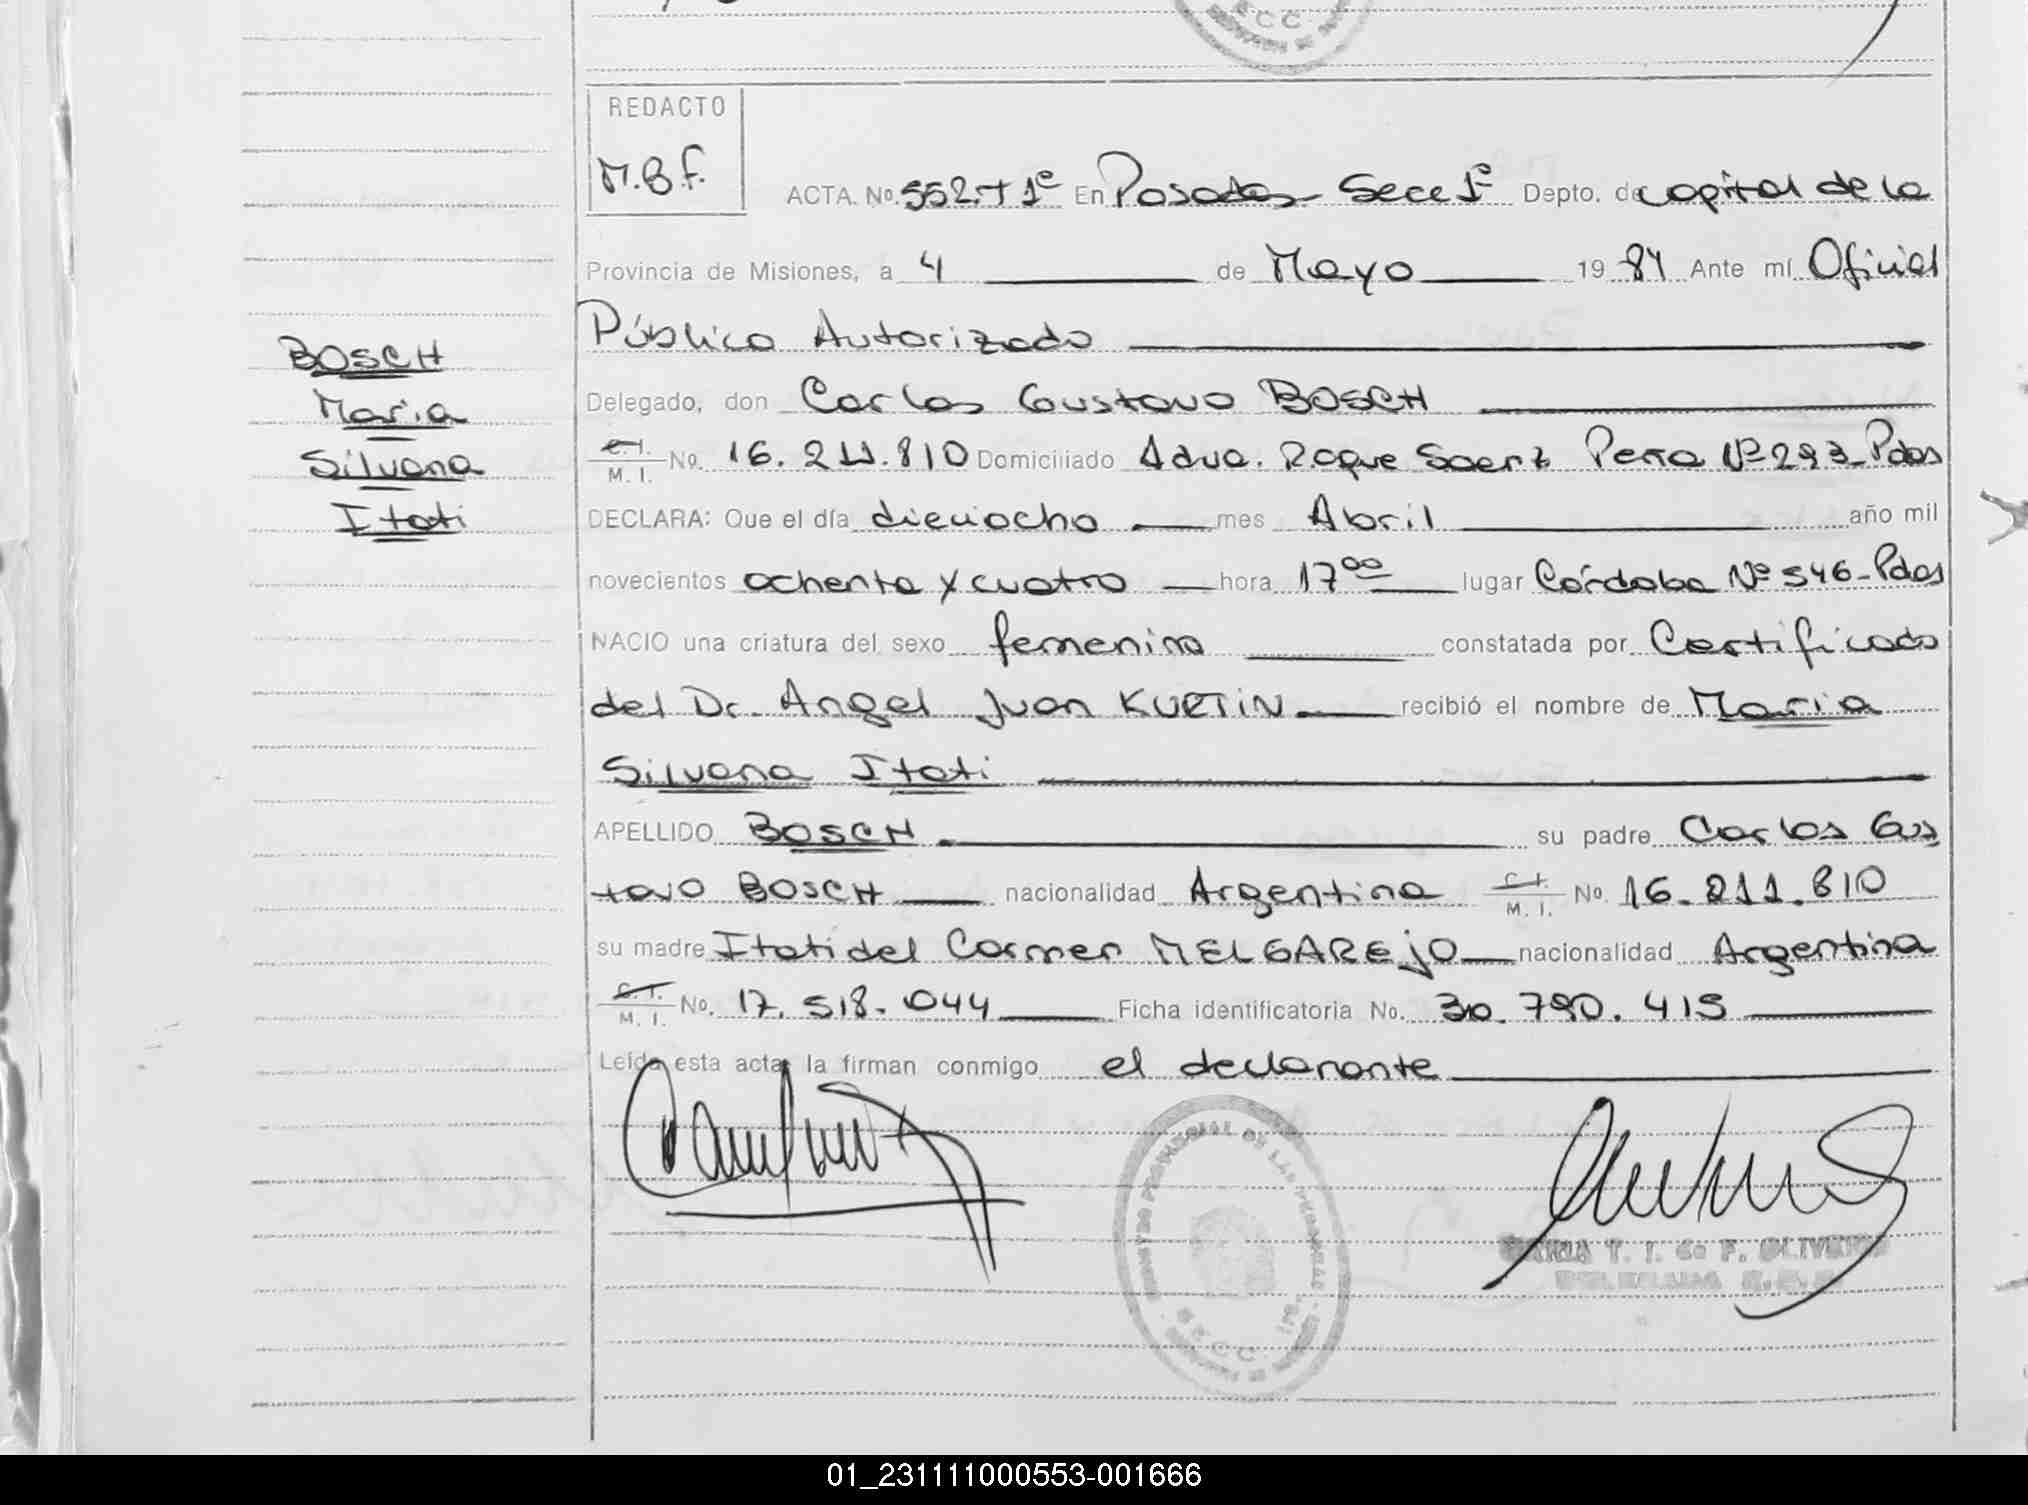 REDACTO
M.B.F.
ACTA. No. 552.T 1º En Posadas Secc 1º Depto. de capital de la
Provincia de Misiones, a 4 de Mayo 19 84 Ante mí Oficial
Público Autorizado
Delegado, don Carlos Gustavo BOSCH
C.I.
M. I. No. 16.211.810 Domiciliado Adva. Roque Saenz Pena Nº 293-Pdas
DECLARA: Que el día dieciocho mes Abril año mil
novecientos ochenta y cuatro hora 17 00 lugar Córdoba Nº 546-Pdas
NACIO una criatura del sexo femenino constatada por Certificado
del Dr. Angel Juan KURTIN recibió el nombre de Maria
Silvana Itati
APELLIDO BOSCH su padre Carlos Gus
tavo BOSCH nacionalidad Argentina C.I.
M. I. No. 16.211.810
su madre Itati del Carmen MELGAREjO nacionalidad Argentina
C.I.
M. I. No. 17.518.044 Ficha identificatoria No. 30.790.415
Leída esta acta, la firman conmigo el declarante
BOSCH
Maria
Silvana
Itati
T. I. G. F. OLIVEIRA
01_231111000553-001666